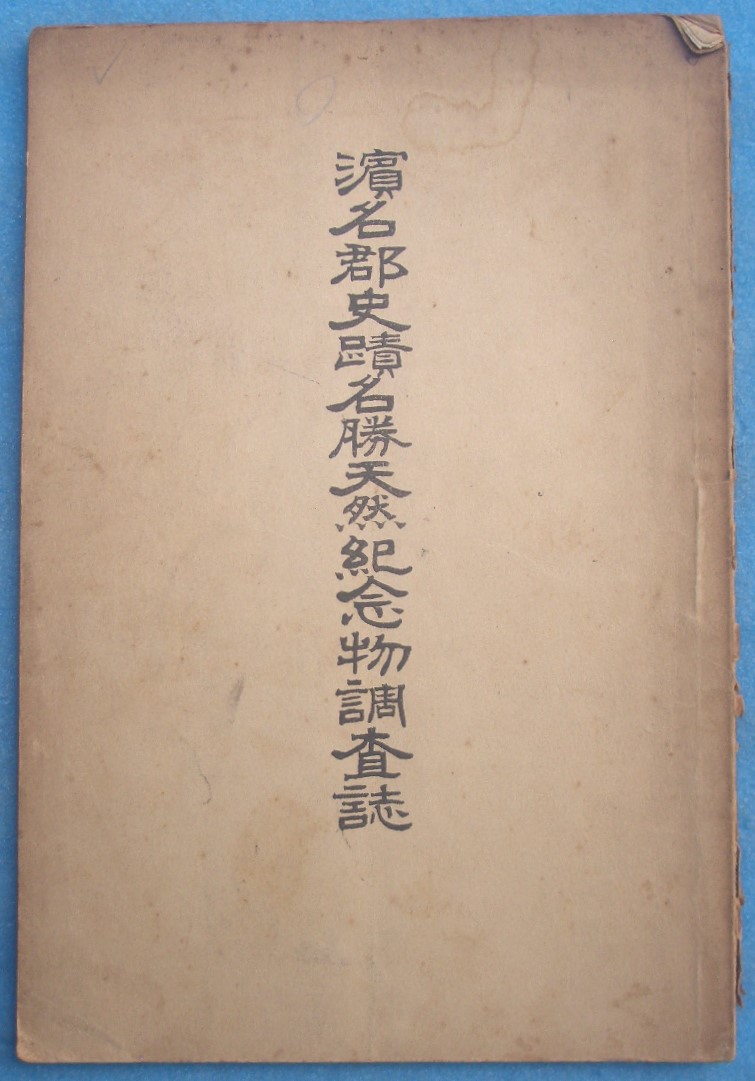 濱名郡史蹟名勝天然紀念物調査誌